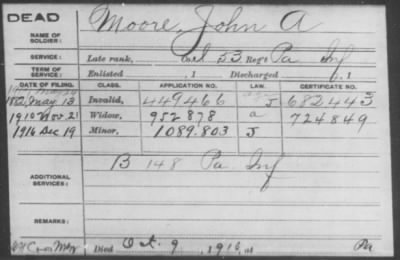 DEAD
Moore, John A
NAME OF SOLDIER:
SERVICE: Late rank, 53, Reg't Pa Inf
TERM OF SERVICE: Enlisted , 1 Discharged , 1
DATE OF FILING. CLASS. APPLICATION NO. LAW. CERTIFICATE NO.
1882 May 13 Invalid, 449466 J 682443
1910 Nov. 21 Widow, 952878 a 724849
1916 Dec 19 Minor, 1089.803 J
ADDITIONAL SERVICES: B 148 Pa Inf
REMARKS:
Died Oct. 9, 1910, at Pa